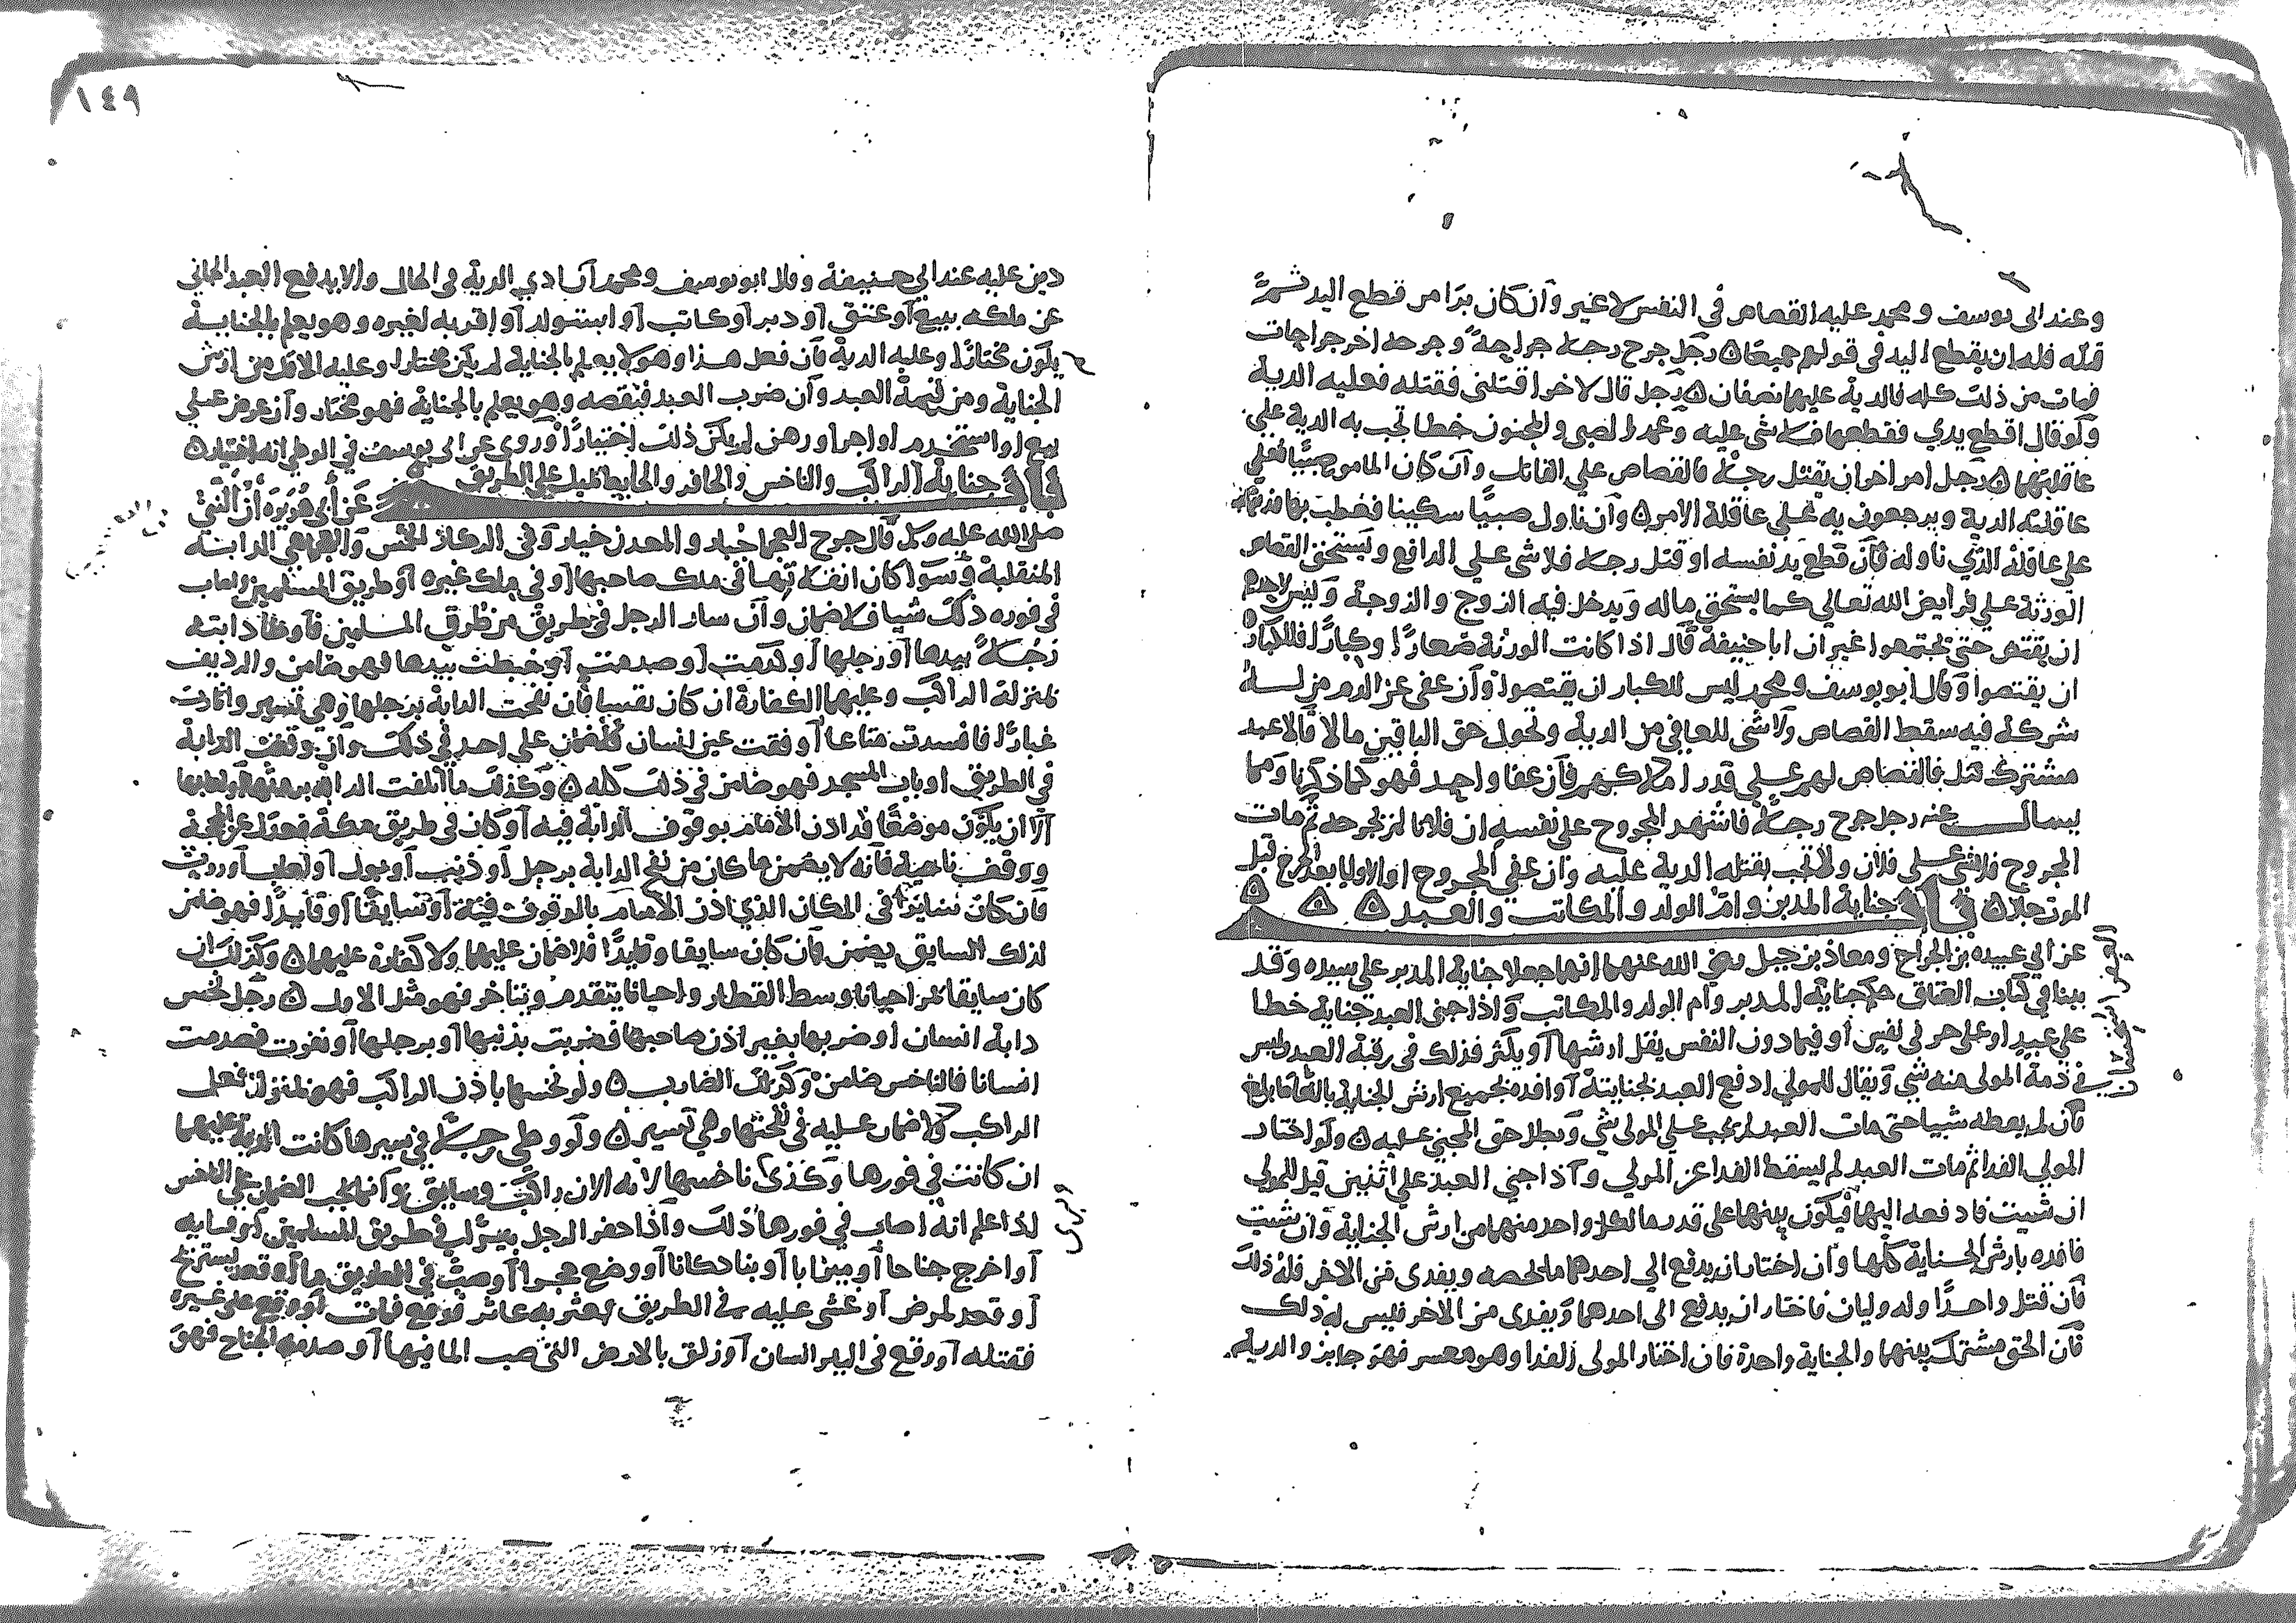 وعند ابى يوسف ومحمد عليه القصاص في النفس لا غير وان كان برا من قطع اليد ثم
قتله فله ان يقطع اليد في قولهم جميعا ۵ رجل جرح رجلا جراحة وجرحه اخر جراحات
فمات من ذلك كله فالدية عليهما نصفان ۵ رجل قال لاخر اقتلنى فقتله فعليه الدية
ولو قال اقطع يدي فقطعها فلا شى عليه وعمد الصبى والمجنون خطا تجب به الدية على
عاقلتهما ۵ رجل امر اخر ان يقتل رجلا فالقصاص علي القاتل وان كان المامور صبيا فعلي
عاقلته الدية ويرجعون به على عاقلة الامر ۵ وان ناول صبيا سكينا فعطب بها فديته
على عاقلة الذي ناوله فان قطع يد نفسه او قتل رجلا فلا شى علي الدافع ويستحق القصاص
الورثة علي فرايض الله تعالي كما يستحق ماله ويدخل فيه الزوج والزوجة وليس لاحدهم
ان يقتص حتى يجتمعوا غير ان ابا حنيفة قال اذا كانت الورثة صغارا وكبارا فللكبار
ان يقتصوا وقال ابو يوسف ومحمد ليس للكبار ان يقتصوا وان عفى عن الدم من له
شركة فيه سقط القصاص ولا شى للعافي من الدية وتحول حق الباقين مالا قالا عبد
مشترك قتل فالقصاص لهم علي قدر املاكهم فان عفا واحد فهو كما ذكرنا ومما
يسال عنه رجل جرح رجلا فاشهد المجروح على نفسه ان فلانا لم يجرحه ثم مات
المجروح فلا شى علي فلان ولا تجب بقتله الدية عليه وان عفى المجروح او الاوليا بعد الجرح قبل
الموت جاز ۵ باب جناية المدبر وام الولد والمكاتب والعبد ۵ ۵ ۵
عن ابي عبيده بن الجراح ومعاذ بن جبل رضي الله عنهما انهما جعلا جناية المدبر علي سيده وقد
بينا في كتاب العتاق حكم جناية المدبر وام الولد والمكاتب واذا جنى العبد جناية خطا
علي عبد او على حر فى نفس او فيما دون النفس يقل ارشها او يكثر فذلك في رقبة العبد وليس
في ذمة المولى منه شى ويقال للمولي ادفع العبد بجنايته او افده بجميع ارش الجناية بالغا ما بلغ
فان لم يعطه شيا حتى مات العبد لم يجب علي المولي شي وبطل حق المجني عليه ۵ ولو اختار
المولي الفدا ثم مات العبد لم يسقط الفدا عن المولي واذا جنى العبد علي اثنين قيل للمولي
ان شيت فادفعه اليهما فيكون بينهما على قدر ما لكل واحد منهما من ارش الجناية وان شيت
فافده بارش الجناية كلها وان اختار ان يدفع الي احدهما ما لحصه ويفدى من الاخر فله ذلك
فان قتل واحدا وله وليان فاختار ان يدفع الى احدهما ويفدى من الاخر فليس له ذلك
فان الحق مشترك بينهما والجناية واحدة فان اختار المولى الفدا وهو معسر فهو جايز والدية
١٤٩
دين عليه عند ابي حنيفة وقال ابو يوسف ومحمد ان ادي الدية فى الحال والا يدفع العبد الجاني
عن ملكه ببيع او عتق او دبر او كاتب او استولد او اقر به لغيره وهو يعلم بالجناية
يكون مختارا وعليه الدية فان فعل هذا وهو لا يعلم بالجناية لم يكن مختارا وعليه الاقل من ارش
الجناية ومن قيمة العبد وان ضرب العبد فنقصه وهو يعلم بالجناية فهو مختار وان عرض علي
بيع او استخدم او اجر او رهن لم يكن ذلك اختيارا وروى عن ابى يوسف في الوطى انه اختيار ۵
باب جناية الراكب والناخس والحافر والحايط يميل علي الطريق عن ابي هريره ان النبي
صلى الله عليه وسلم قال جرح العجما جبار والمعدن جبار وفى الركاز الخمس والعجما هي الدابة
المنفلتة وسوا كان انفلاتها فى ملك صاحبها او في ملك غيره او طريق المسلمين واصاب
في فوره ذلك شيا فلا ضمان وان سار الرجل في طريق من طرق المسلمين فاوطا دابته
رجلا بيدها او رجلها او كدمت او صدمت او خبطت بيدها فهو ضامن والرديف
بمنزلة الراكب وعليهما الكفارة ان كان نفسا فان نفحت الدابة برجلها وهي تسير واثارت
غبارا فافسدت متاعا او فقت عين انسان فلا ضمان علي احد في ذلك وان وقفت الدابة
في الطريق او باب المسجد فهو ضامن في ذلك كله ۵ وكذلك ما اتلفت الدابة ببعرها او لعابها
الا ان يكون موضعا قد اذن الامام بوقوف الدابة فيه او كان في طريق مكة فعدل عن المحجة
ووقف ناحية فانه لا يضمن ما كان من نفح الدابة برجل او ذنب او بول او لعاب او روث
فان كان سايرا في المكان الذي اذن الامام بالوقوف فيه او سايقا او قايدا فهو ضامن
لذلك السايق يضمن فان كان سايقا وقايدا فلا ضمان عليهما ولا كفارة عليهما ۵ وكذلك ان
كان سايقا لكن احيانا وسط القطار واحيانا يتقدم ويتاخر فهو مثل الاول ۵ رجل نخس
دابة انسان او ضربها بغير اذن صاحبها فضربت بذنبها او برجلها او نفرت فصدمت
انسانا فالناخس ضامن وكذلك الضارب ۵ ولو نخسها باذن الراكب فهو بمنزلة فعل
الراكب لا ضمان عليه في نفحتها وهي تسير ۵ ولو وطي رجلا في سيرها كانت الدية عليهما
ان كانت في فورها وكذى ناخسها لانه الان راكب وسايق وانما يجب الضمان علي الناخس
اذا علم انه اصاب في فورها ذلك واذا حفر الرجل بيرا في طريق المسلمين او مصايه
او اخرج جناحا او ميزابا او بنا دكانا او وضع حجرا او صب في الطريق ما او قعد يستريح
او قعد لمرض او غشى عليه في الطريق فعثر به عاثر فوقع فمات او وقع على غيره
فقتله او وقع فى البير انسان او زلق بالارض التى صب الما فيها او صدمه الجناح فهو